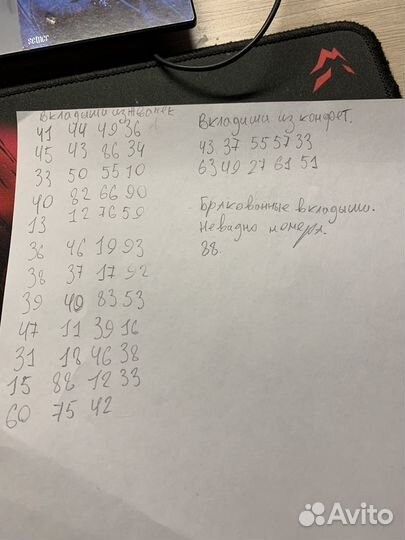 Вкладыши из жвачек
41 44 49 36
45 43 86 34
33 50 55 10
40 82 66 90
13 12 76 59
36 46 19 93
38 37 17 92
39 40 83 53
47 11 39 16
31 18 46 38
15 88 12 33
60 75 42
Вкладиши из конфет.
43 37 55 57 33
63 49 27 61 51
Бракованные вкладыши.
Невидно номера.
38.
Avito